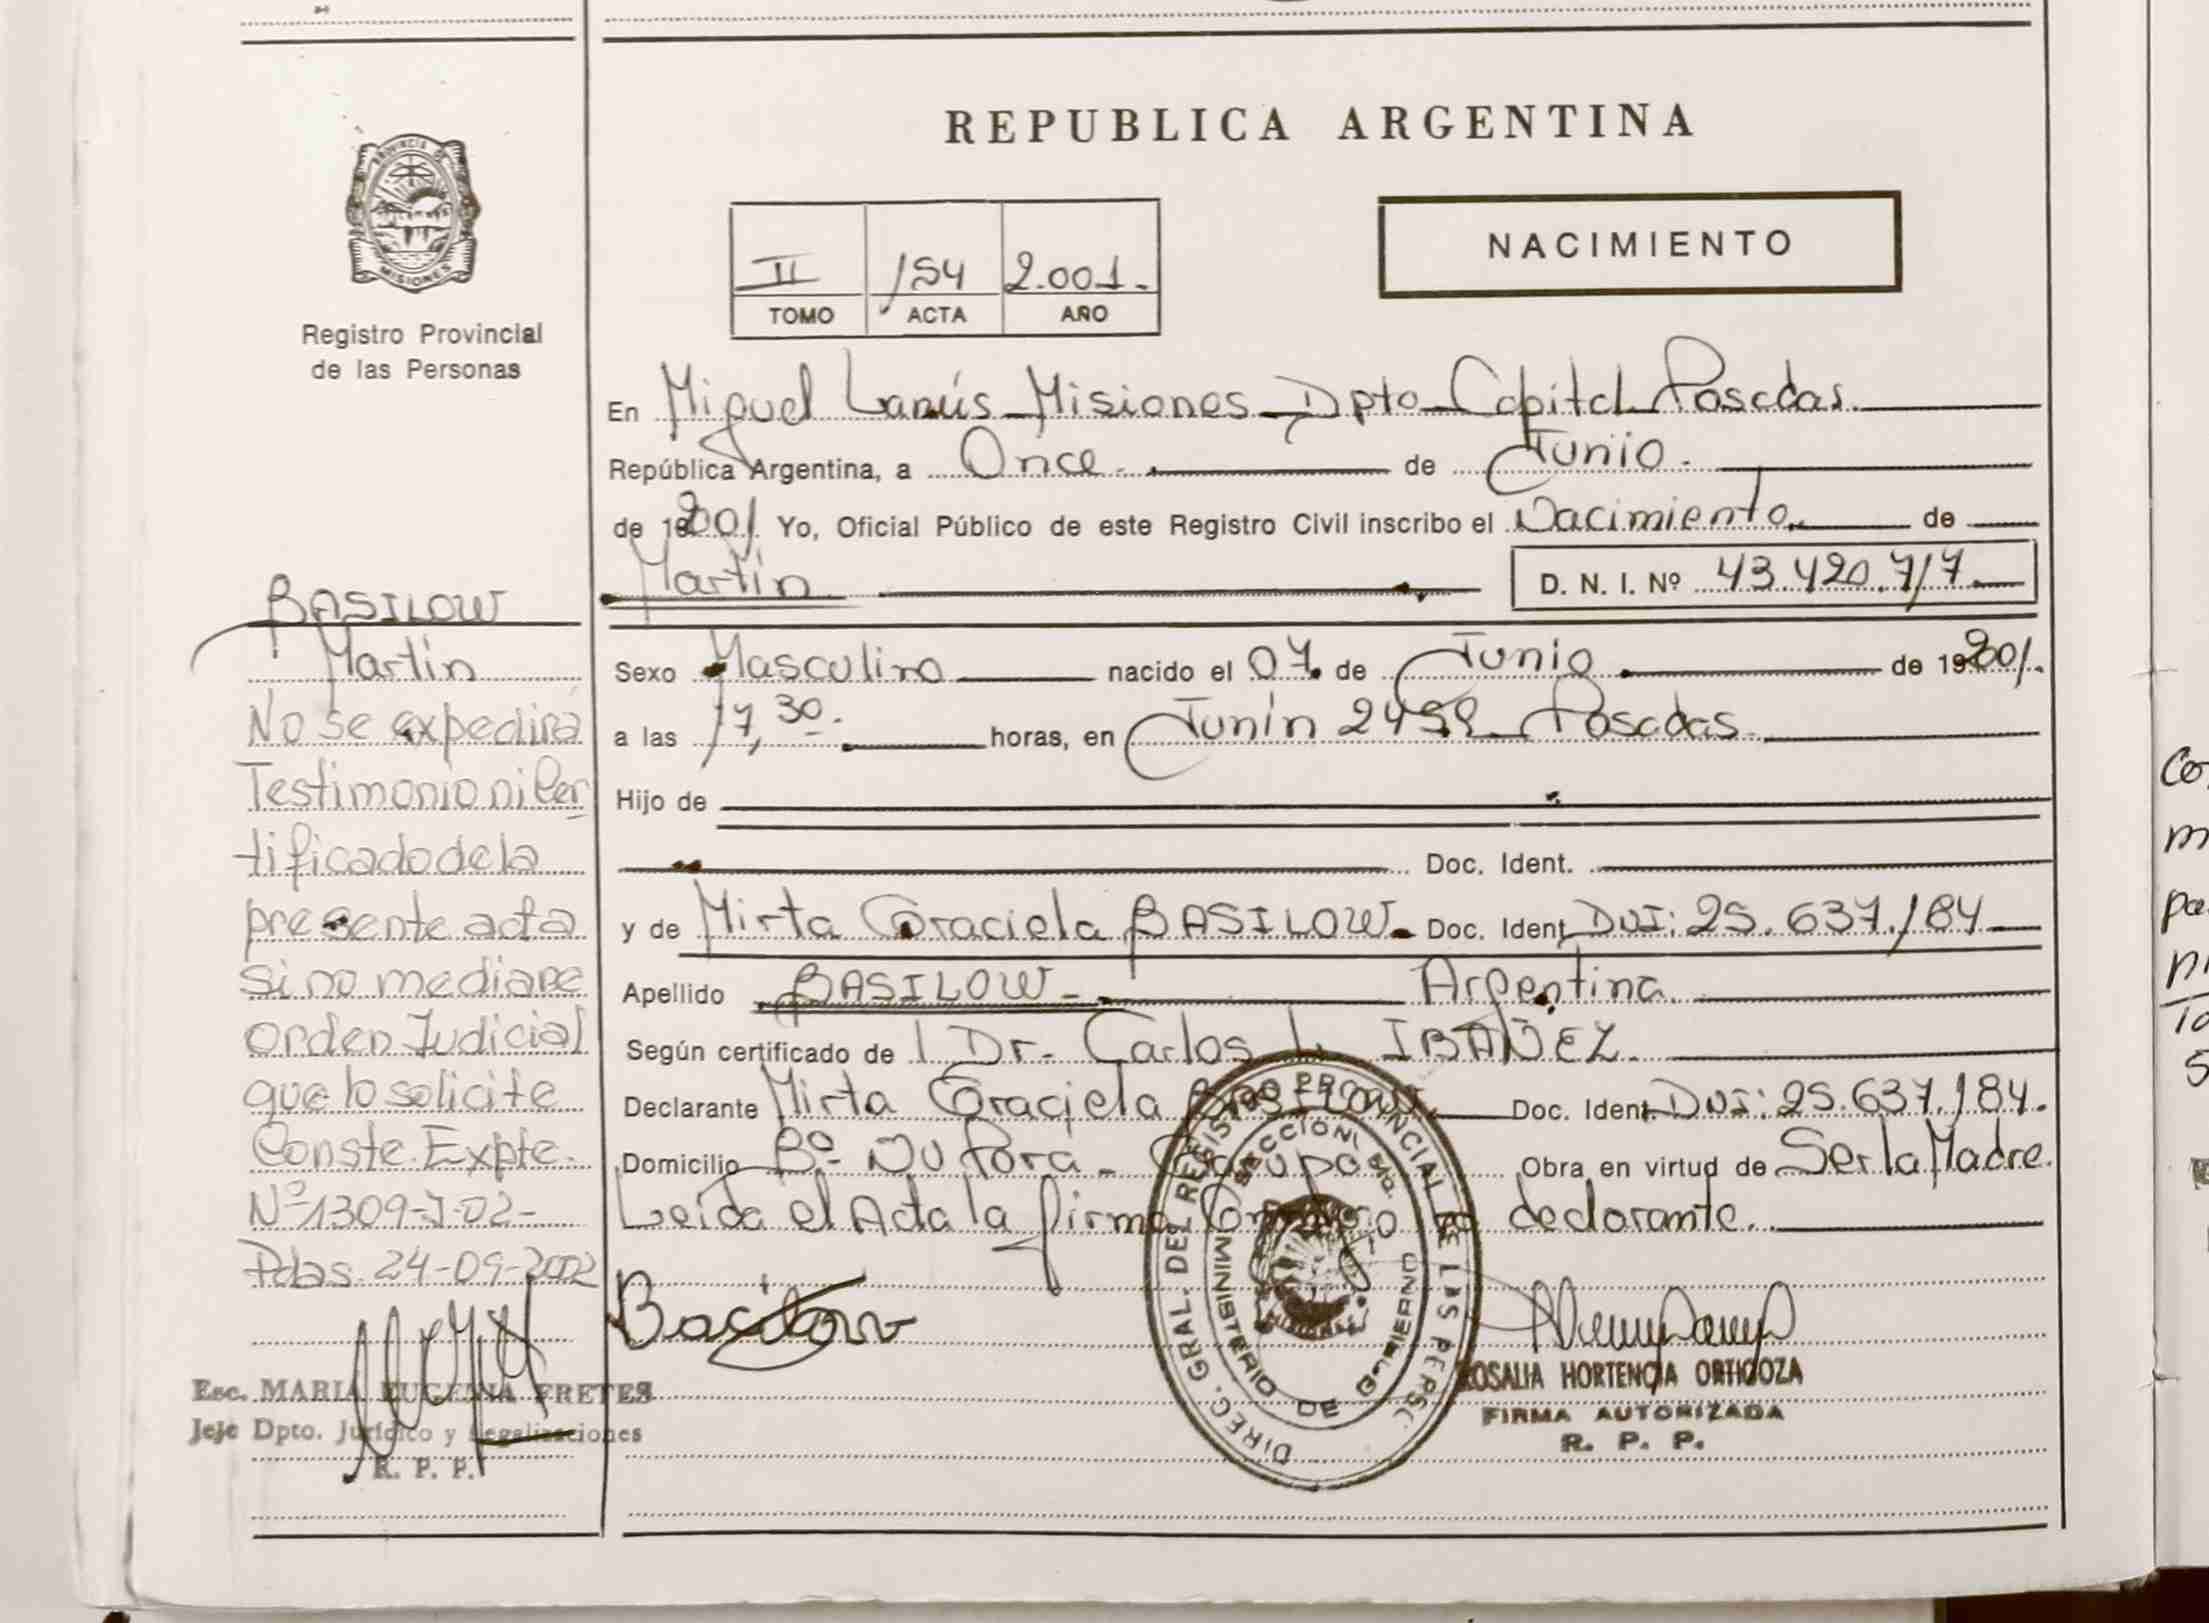 PROVINCIA DE
MISIONES
Registro Provincial
de las Personas
BASILOW
Martín
No se expedirá
Testimonio ni Cer
tificado de la
presente acta
si no mediare
Orden Judicial
que lo solicite
Conste. Expte.
Nº 1309-J-02-
Pdas. 24-09-2002
Esc. MARIA EUGENIA FRETES
Jefe Dpto. Jurídico y Legalizaciones
R. P. P.
REPUBLICA ARGENTINA
II 154 2.001.
TOMO ACTA AÑO
NACIMIENTO
En Miguel Lanús Misiones Dpto Capital Posadas.
República Argentina, a Once. de Junio.
de 2001 Yo, Oficial Público de este Registro Civil inscribo el Nacimiento. de
Martín D. N. I. Nº 43.420.717.
Sexo Masculino nacido el 07. de Junio. de 2001.
a las 17,30. horas, en Junín 2452 Posadas.
Hijo de
Doc. Ident.
y de Mirta Graciela BASILOW. Doc. Ident. DNI: 25.637.184
Apellido BASILOW. Argentina.
Según certificado de Dr. Carlos L. IBAÑEZ.
Declarante Mirta Graciela BASILOW. Doc. Ident. DNI: 25.637.184.
Domicilio Bº Ñu Porá. Garupá. Obra en virtud de Ser la Madre.
Leída el Acta la firma Conmigo la declarante.
Basilow
DIREC. GRAL. DEL REGISTRO PROVINCIAL DE LAS PERSO
MINISTERIO DE GOBIERNO
MISIONES
ROSALIA HORTENCIA ORTIGOZA
FIRMA AUTORIZADA
R. P. P.